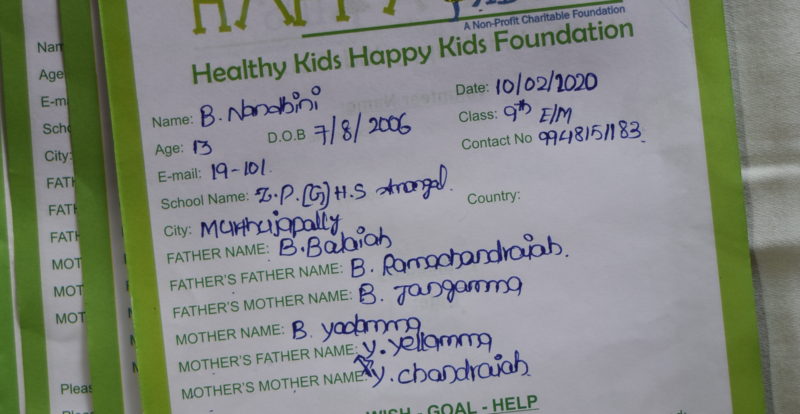 HAPPY
A Non-Profit Charitable Foundation
Healthy Kids Happy Kids Foundation
Name: B. Nandhini Date: 10/02/2020
Age: 13 D.O.B 7/8/2006 Class: 9th E/M
E-mail: 19-101. Contact No 9948151183.
School Name: Z.P.(G)H.S
City: Country:
FATHER NAME: B. Balaiah
FATHER'S FATHER NAME: B. Ramachandraiah.
FATHER'S MOTHER NAME: B. Jangamma
MOTHER NAME: B. yadamma
MOTHER'S FATHER NAME: y. yellamma
MOTHER'S MOTHER NAME: y. chandraiah
WISH - GOAL - HELP
Age
E-m
City:
FATH
FATH
FATH
MOT
MOT
MOT
Pleas